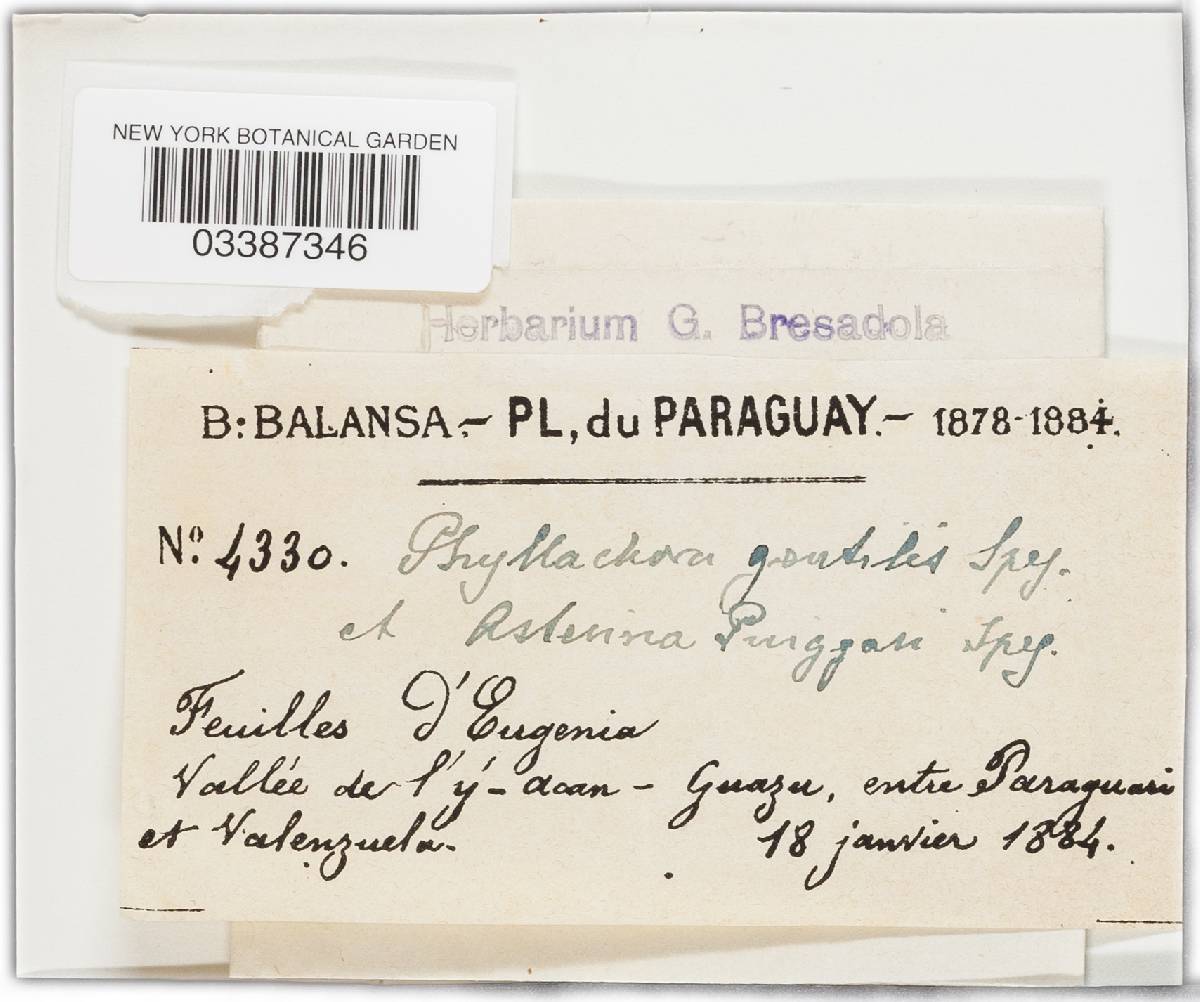 NEW YORK BOTANICAL GARDEN
03387346
Herbarium G. Bresadola
B: BALANSA.- PL, du PARAGUAY.- 1878-1884.
No. 4330. Phyllachora gentilis Speg.
et Asterina Puiggari Speg.
Feuilles d'Eugenia
Vallée de l'ý-acan-Guazu, entre Paraguari
et Valenzuela. 18 janvier 1884.